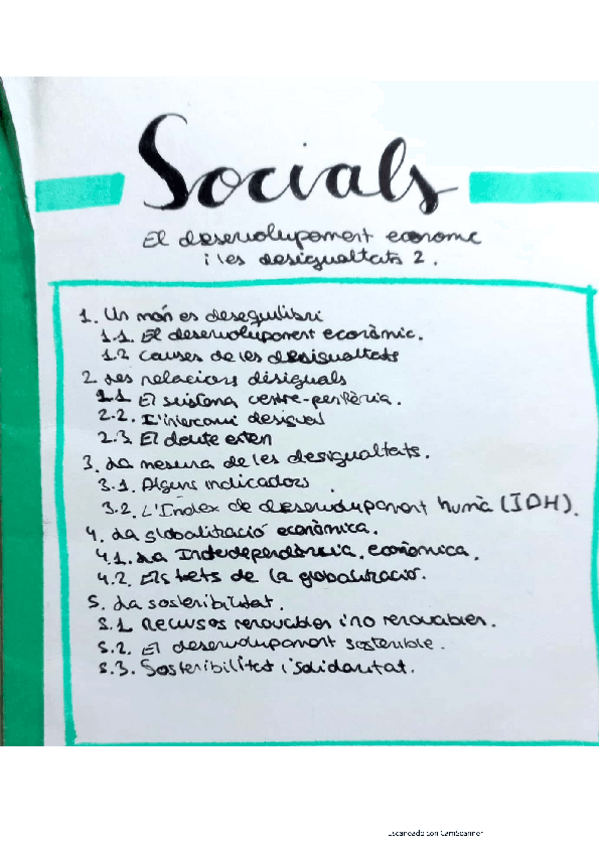 Socials
El desenvolupament econòmic
i les desigualtats 2.
1. Un món es desequilibri
1.1. El desenvolupament econòmic.
1.2 Causes de les desigualtats
2. Les relacions desiguals
2.1 El sistema centre-perifèria.
2.2. L'intercanvi desigual
2.3. El deute extern
3. La mesura de les desigualtats.
3.1. Alguns indicadors
3.2. L'Índex de desenvolupament humà (IDH).
4. La globalització econòmica.
4.1. La Interdependència econòmica.
4.2. Els fets de la globalització.
5. La sostenibilitat.
5.1 Recursos renovables i no renovables.
5.2. El desenvolupament sostenible.
5.3. Sostenibilitat i solidaritat.
Escaneado con CamScanner